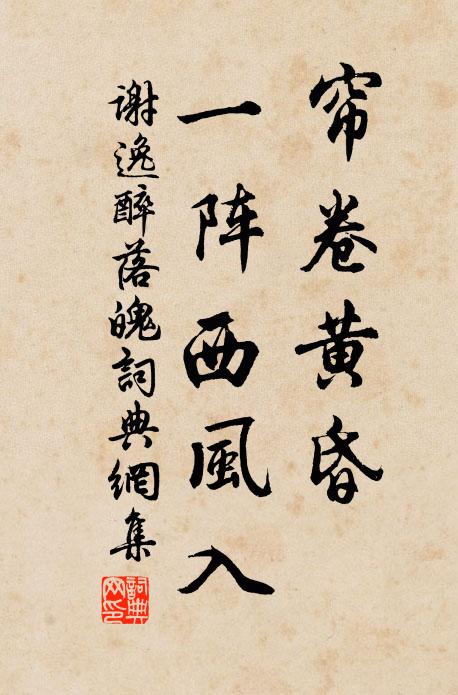 帘卷黄昏
一阵西風入
谢逸醉落魄詞典網集
詞典网印